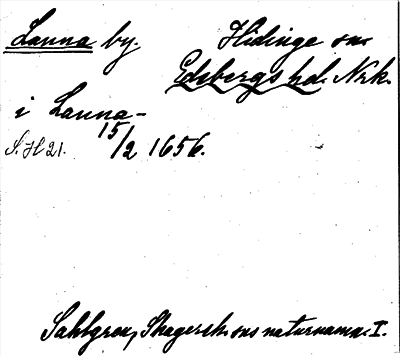 Launa by. Hidinge sn
Edsbergs hd. Nrk.
i Launa-
15/2 1656.
S. H 21.
Sahlgren, Skagersh. sns naturnamn. I.